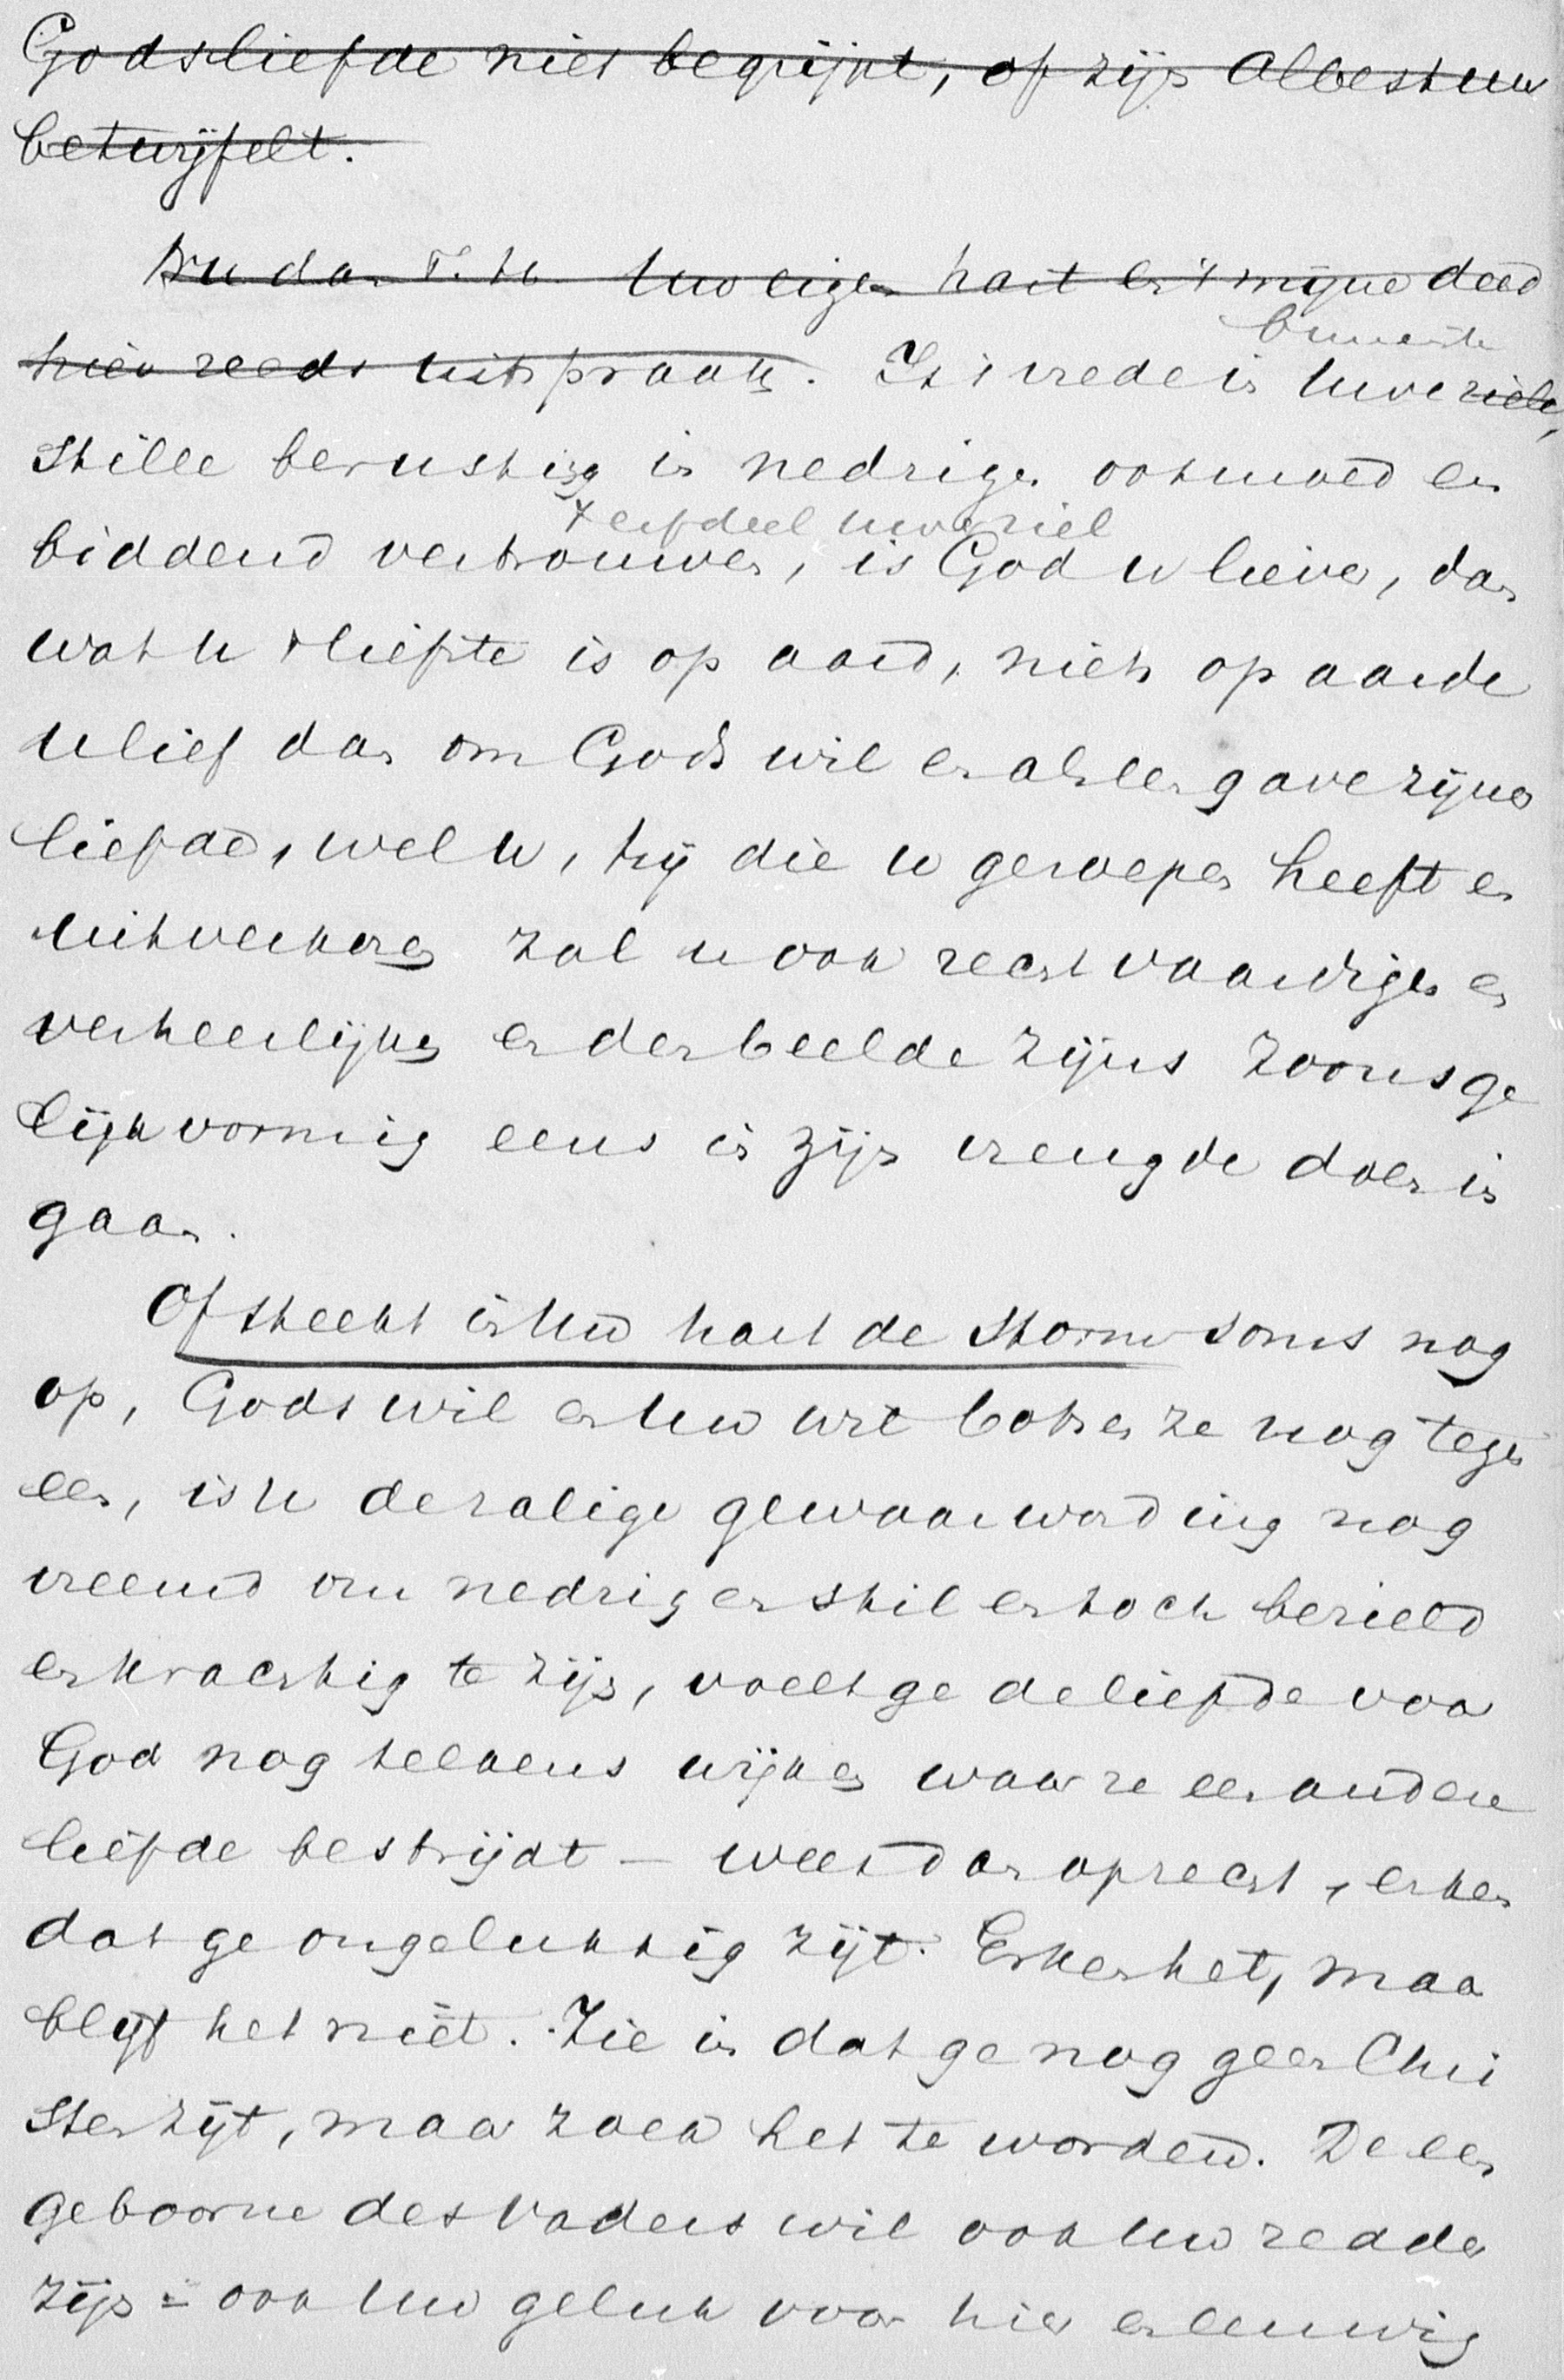 Godsliefde niet begrijpt, of zijn Albestuur
betwijfelt.
Nu dan T. H. Uw eigen hart en 't mijne deed
hier reeds uitspraak. Is 't vrede in Uwe ziele,
stille berusting in nedrige ootmoed en
't erfdeel uwer ziel
biddend vertrouwen, is God u liever, dan
wat u 't liefste is op aard, niets op aarde
u lief dan om Gods wil en als een gave zijner
liefde, wel u, hij die u geroepen heeft en
uitverkoren zal u ook rechtvaardigen en
verheerlijken en den beelde zijns Zoons ge
lijkvormig eens in zijn vreugde doen in
gaan.
Of steekt in Uw hart de storm soms nog
op, Gods wil en Uw wil botsen ze nog tegen
een, is u de zalige gewaarwording nog
vreemd om nedrig en stil en toch bezield
en krachtig te zijn, voelt ge de liefde voor
God nog telkens wijken waar ze een andere
liefde bestrijdt – weest dan oprecht, erken
dat ge ongelukkig zijt. Erken het, maar
blijf het niet. Zie in dat ge nog geen Chri
sten zijt, maar zoek het te worden. De een
geboorne des Vaders wil ook Uw redder
zijn – ook Uw geluk voor hier en eeuwig